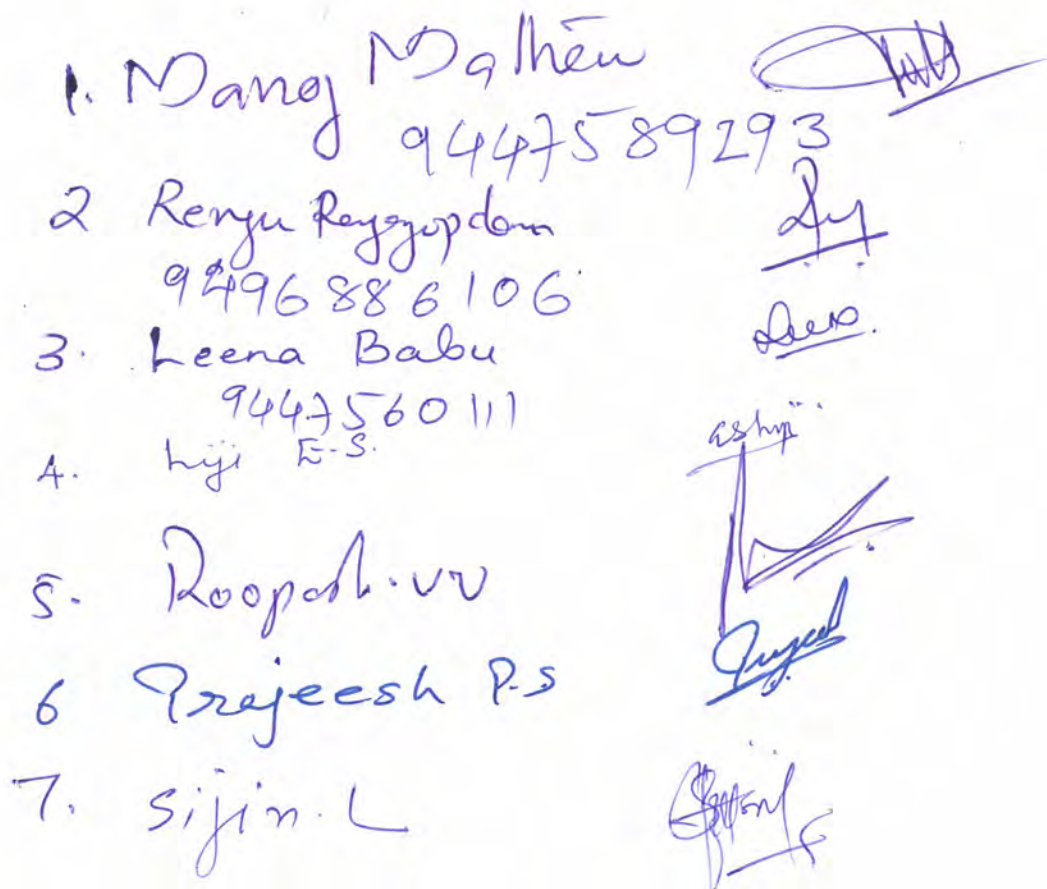 1. Manoj Mathew
9447589293
2 Renju
9496886106
3. Leena Babu
9447560111
4. Liji E.S.
5. Roopesh.VV
6 Prajeesh P.S
7. Sijin. L